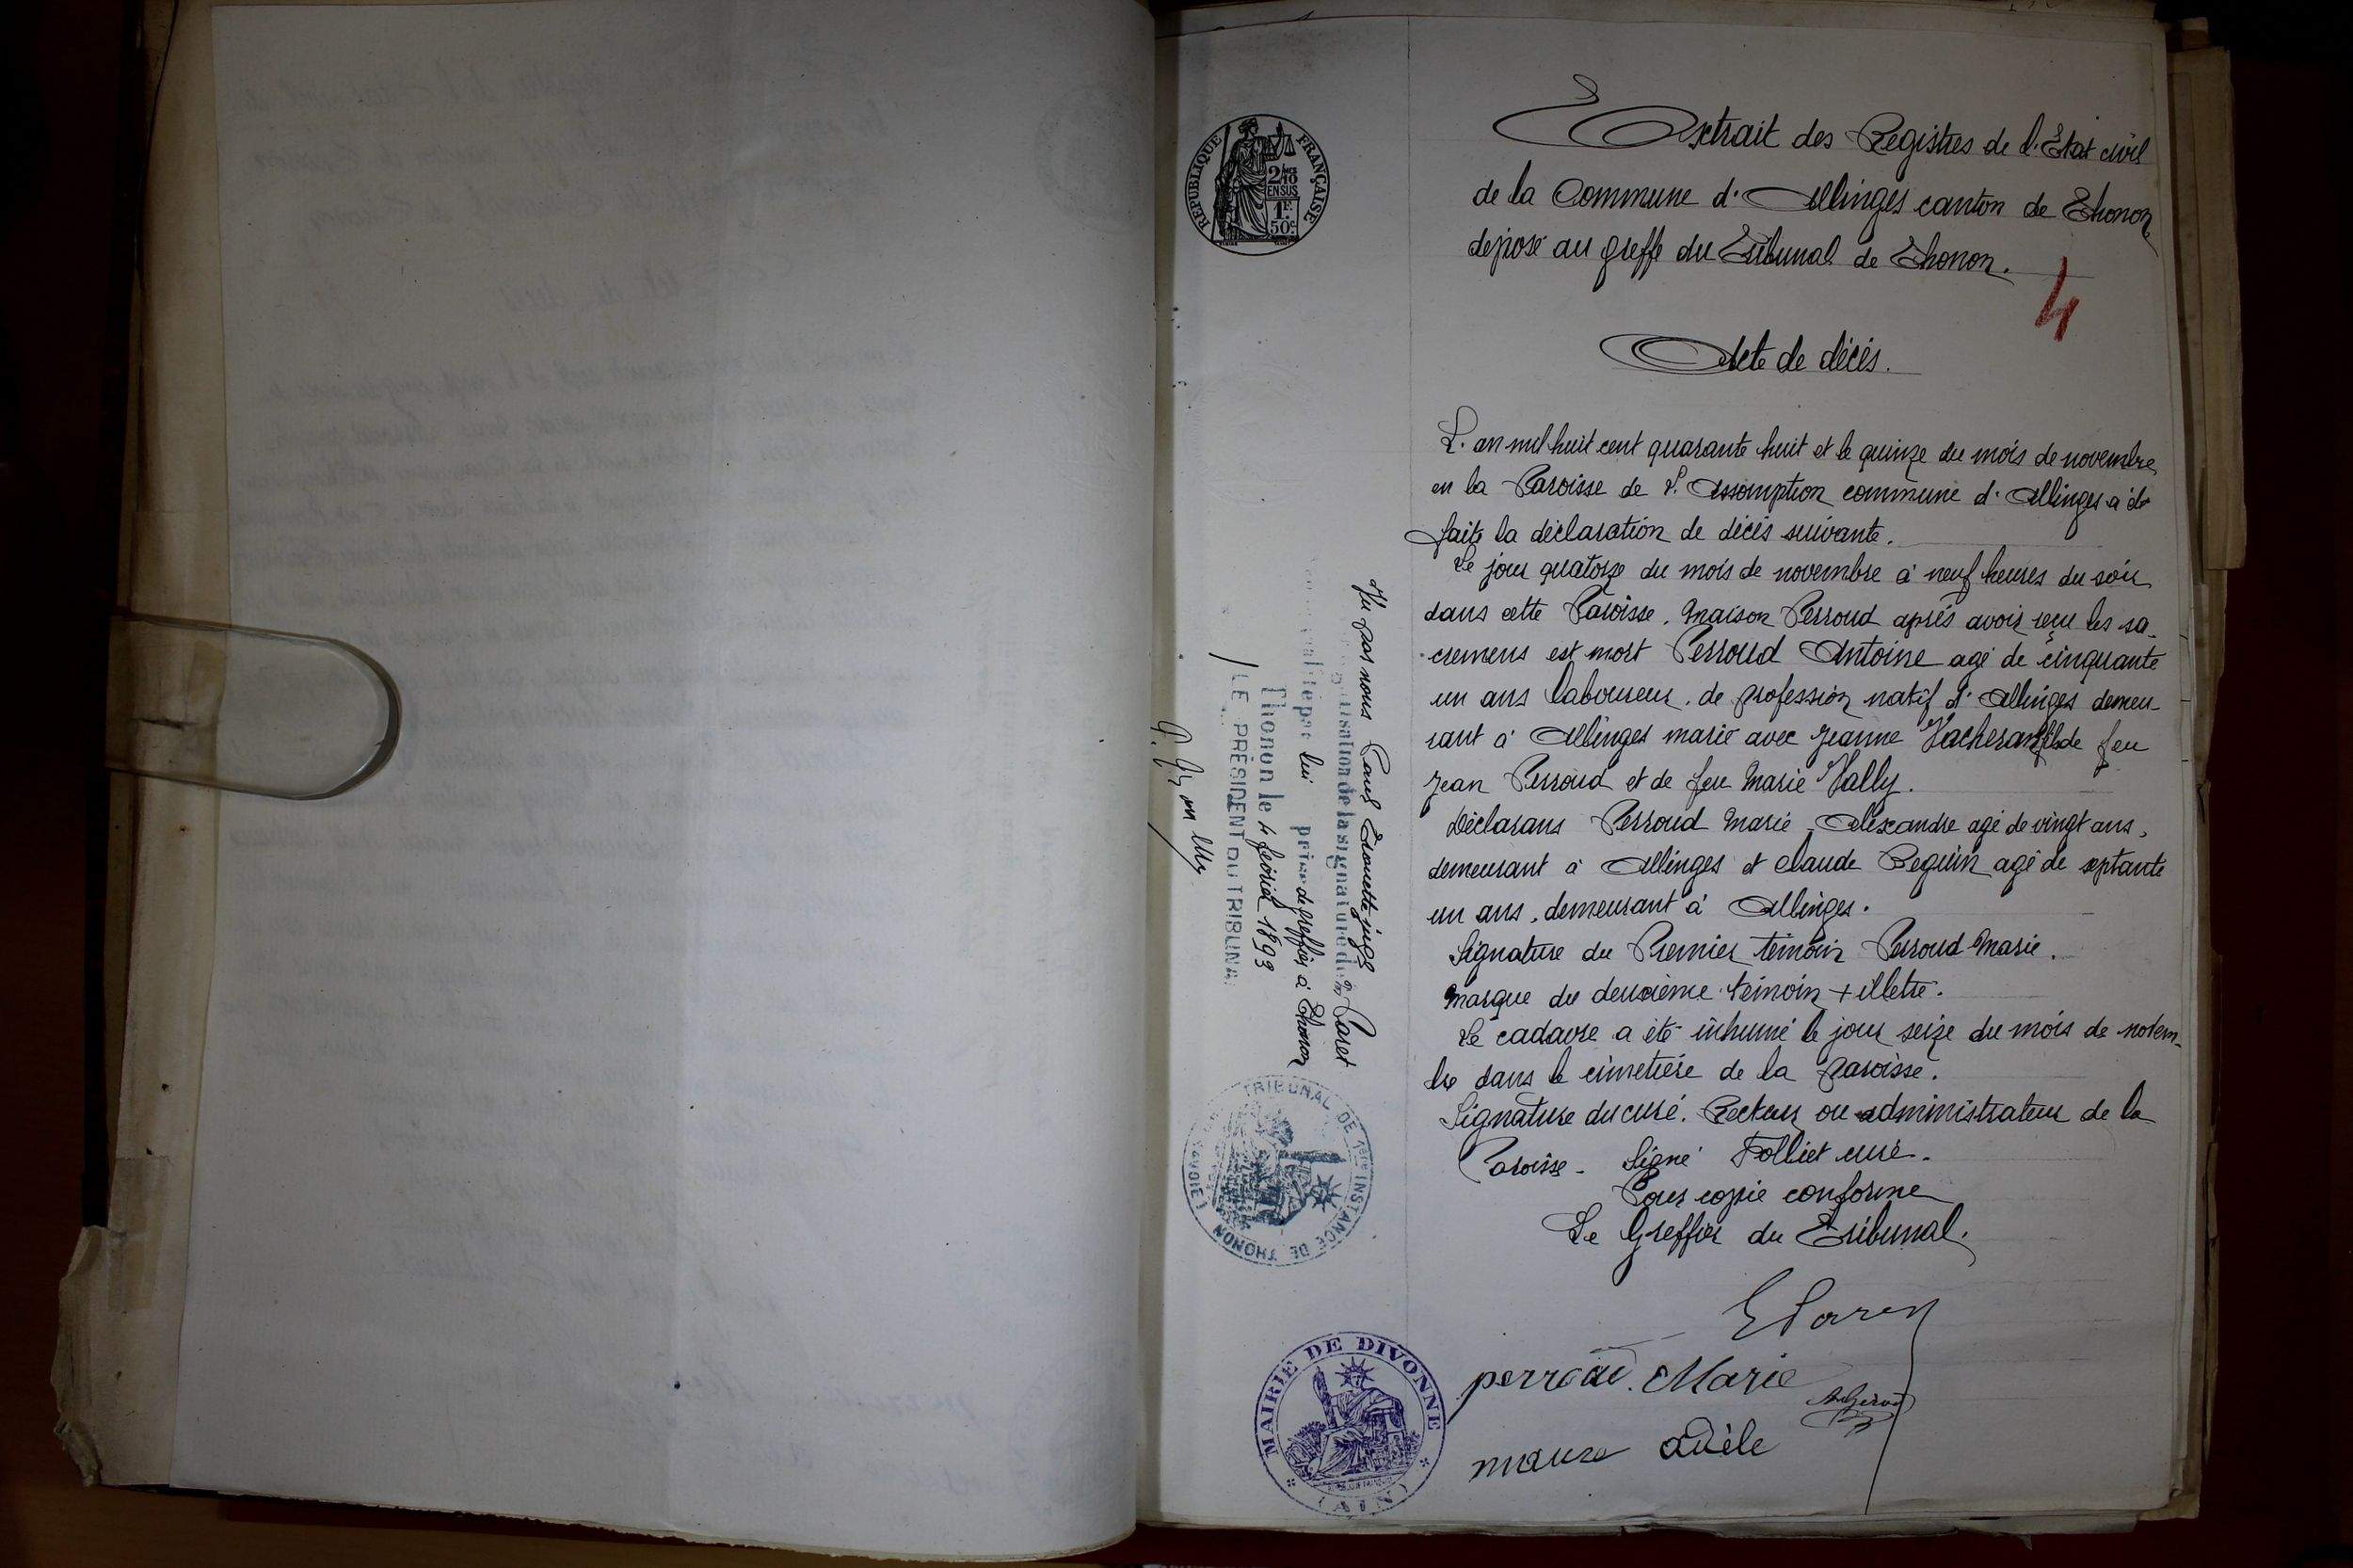 Extrait des Registres de l'Etat civil
de la Commune d'Allinges canton de Thonon
déposé au greffe du Tribunal de Thonon.
4
Acte de décès.
L'an mil huit cent quarante huit et le quinze du mois de novembre
en la Paroisse de l'Assomption commune d'Allinges a été
faite la déclaration de décès suivante.
Le jour quatorze du mois de novembre à neuf heures du soir
dans cette Paroisse, maison Perroud après avoir reçu les sa-
cremens est mort Perroud Antoine agé de cinquante
un ans laboureur de profession natif d'Allinges demeu-
rant à Allinges marié avec Jeanne Vacherand fils de feu
Jean Perroud et de feu Marie Vally.
Déclarans Perroud Marie Alexandre agé de vingt ans,
demeurant à Allinges et Claude Requin agé de septante
un ans, demeurant à Allinges.
Signature du Premier témoin Perroud Marie.
Marque du deuxième témoin + illetré.
Le cadavre a été inhumé le jour seize du mois de novem-
bre dans le cimetière de la Paroisse.
Signature du curé. Recteur ou administrateur de la
Paroisse. Signé Folliet curé.
Pour copie conforme
Le Greffier du Tribunal.
perroud Marie
Adèle
RÉPUBLIQUE FRANÇAISE
2/10
EN SUS
1F.
50c.
Vu par nous juge
légalisation de la signature de Mr Paret
lui près de greffier à Thonon
Thonon le 4 février 1893
LE PRÉSIDENT DU TRIBUNAL
TRIBUNAL DE 1ère INSTANCE DE THONON
MAIRIE DE DIVONNE
(AIN)